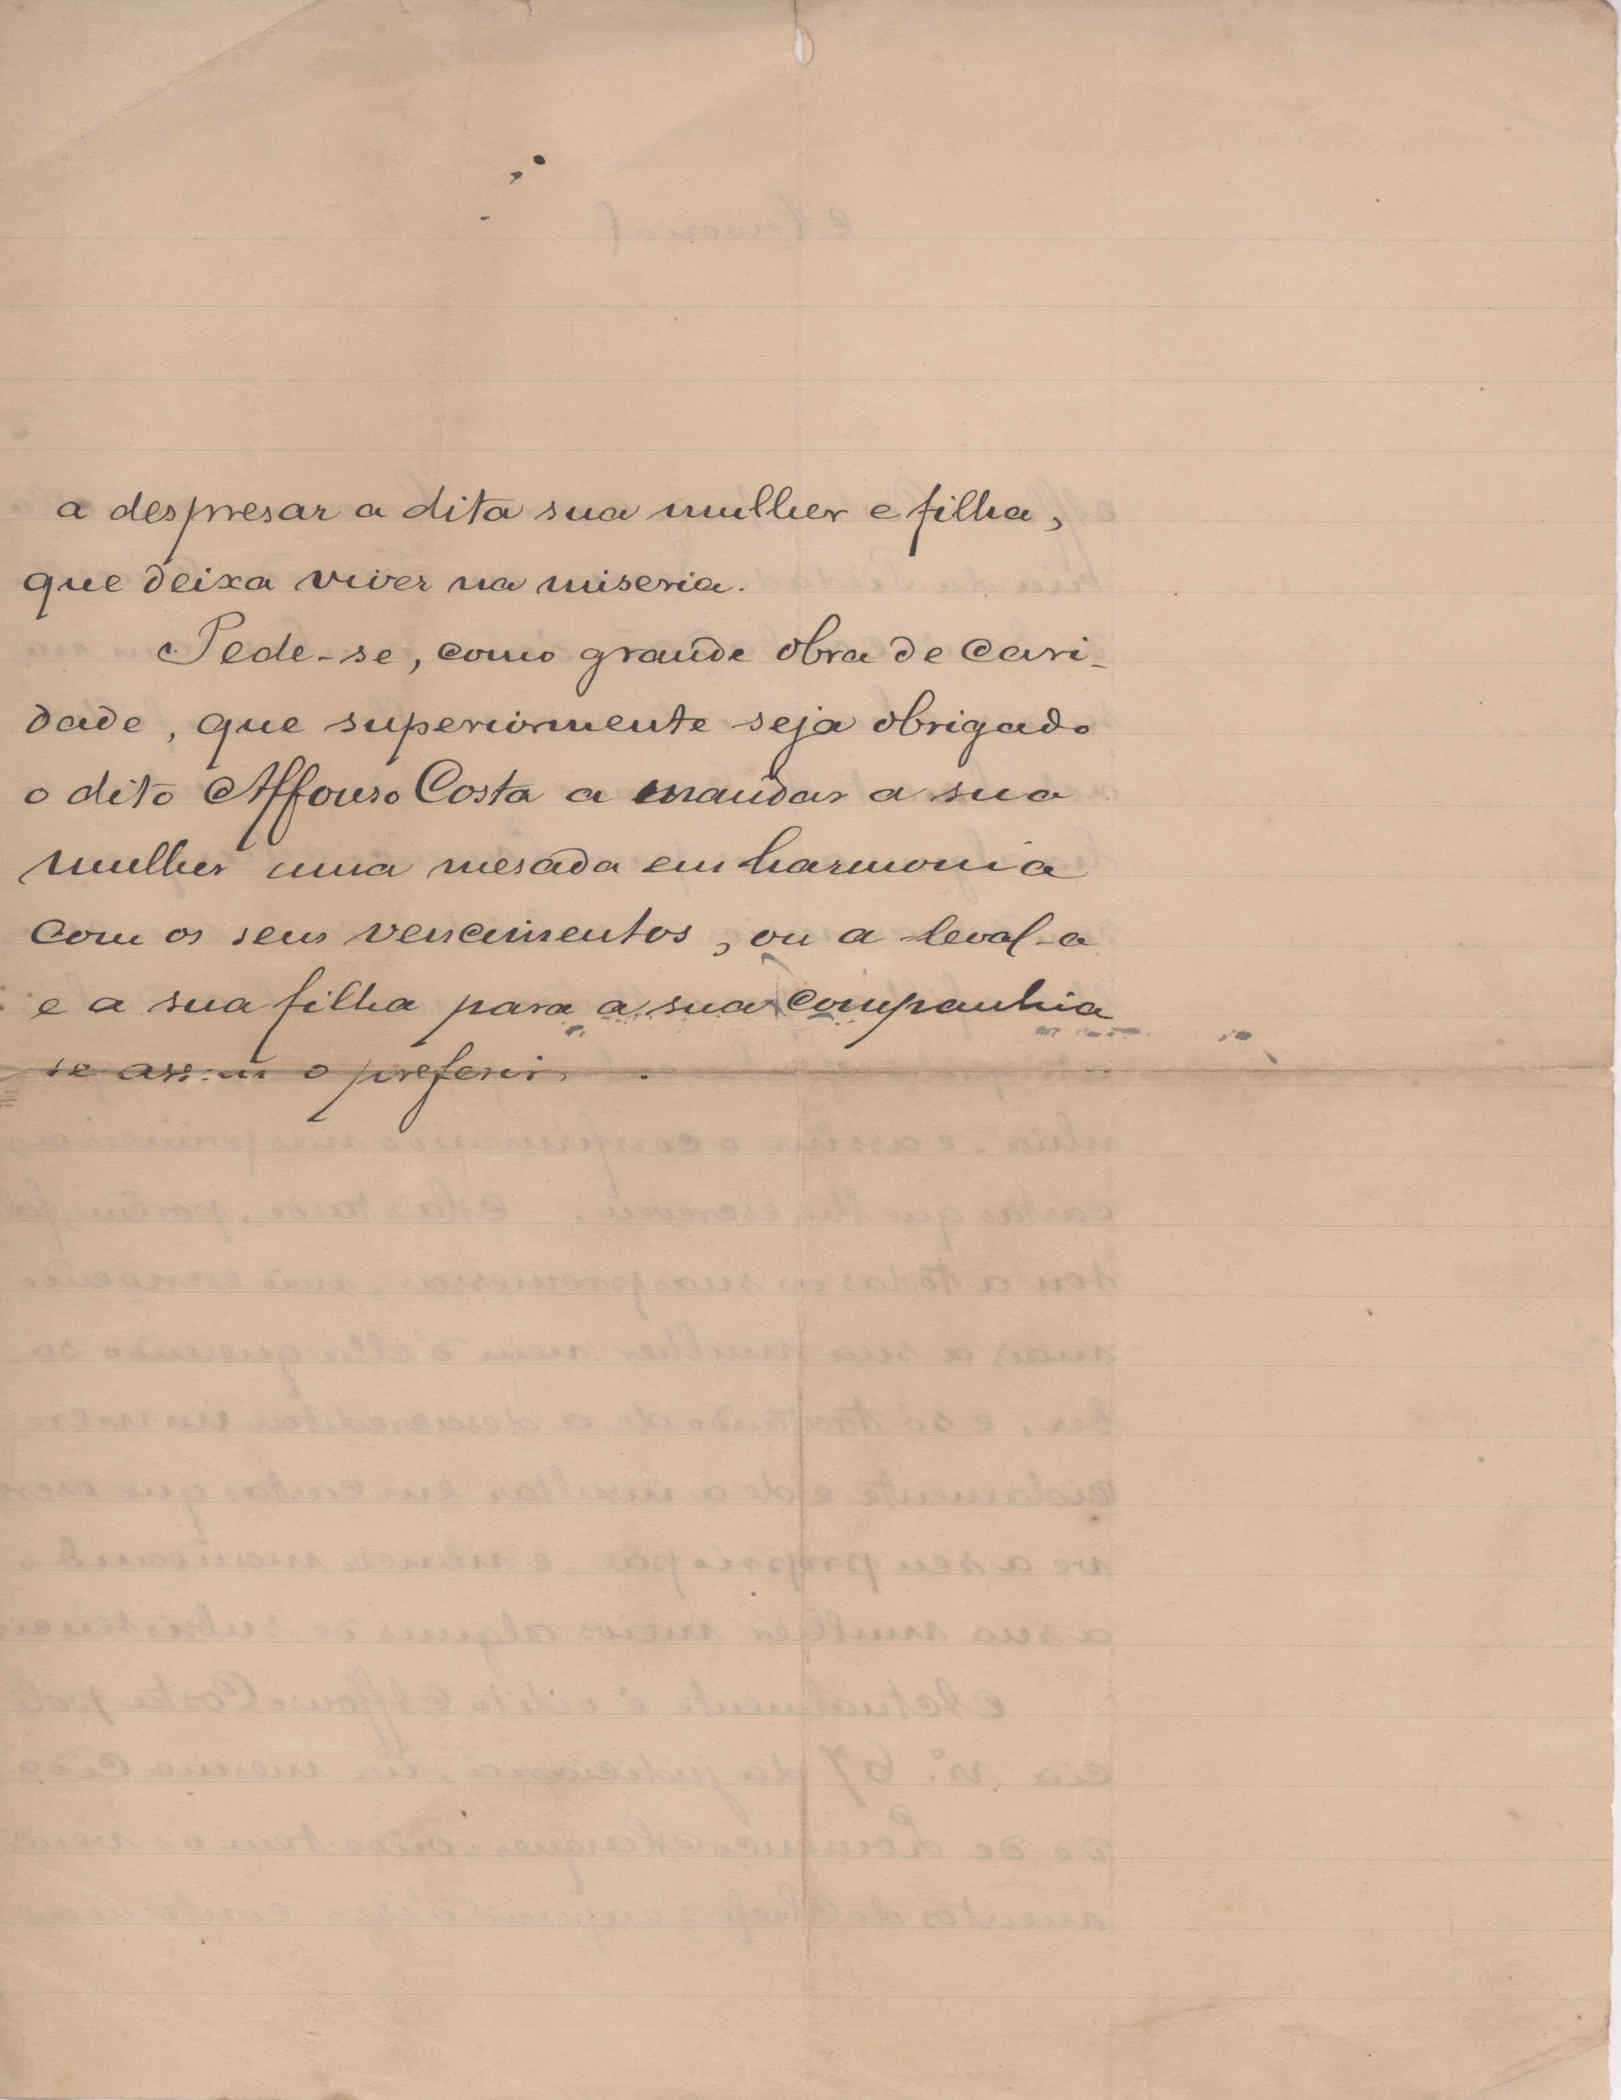 a despresar a dita sua mulher e filha,
que deixa viver na miseria.
Pede-se, como grande obra de cari-
dade, que superiormente seja obrigado
o dito Affonso Costa a mandar a sua
mulher uma mesada em harmonia
com os seus vencimentos, ou a leval-a
e a sua filha para a sua companhia
se assim o preferir.